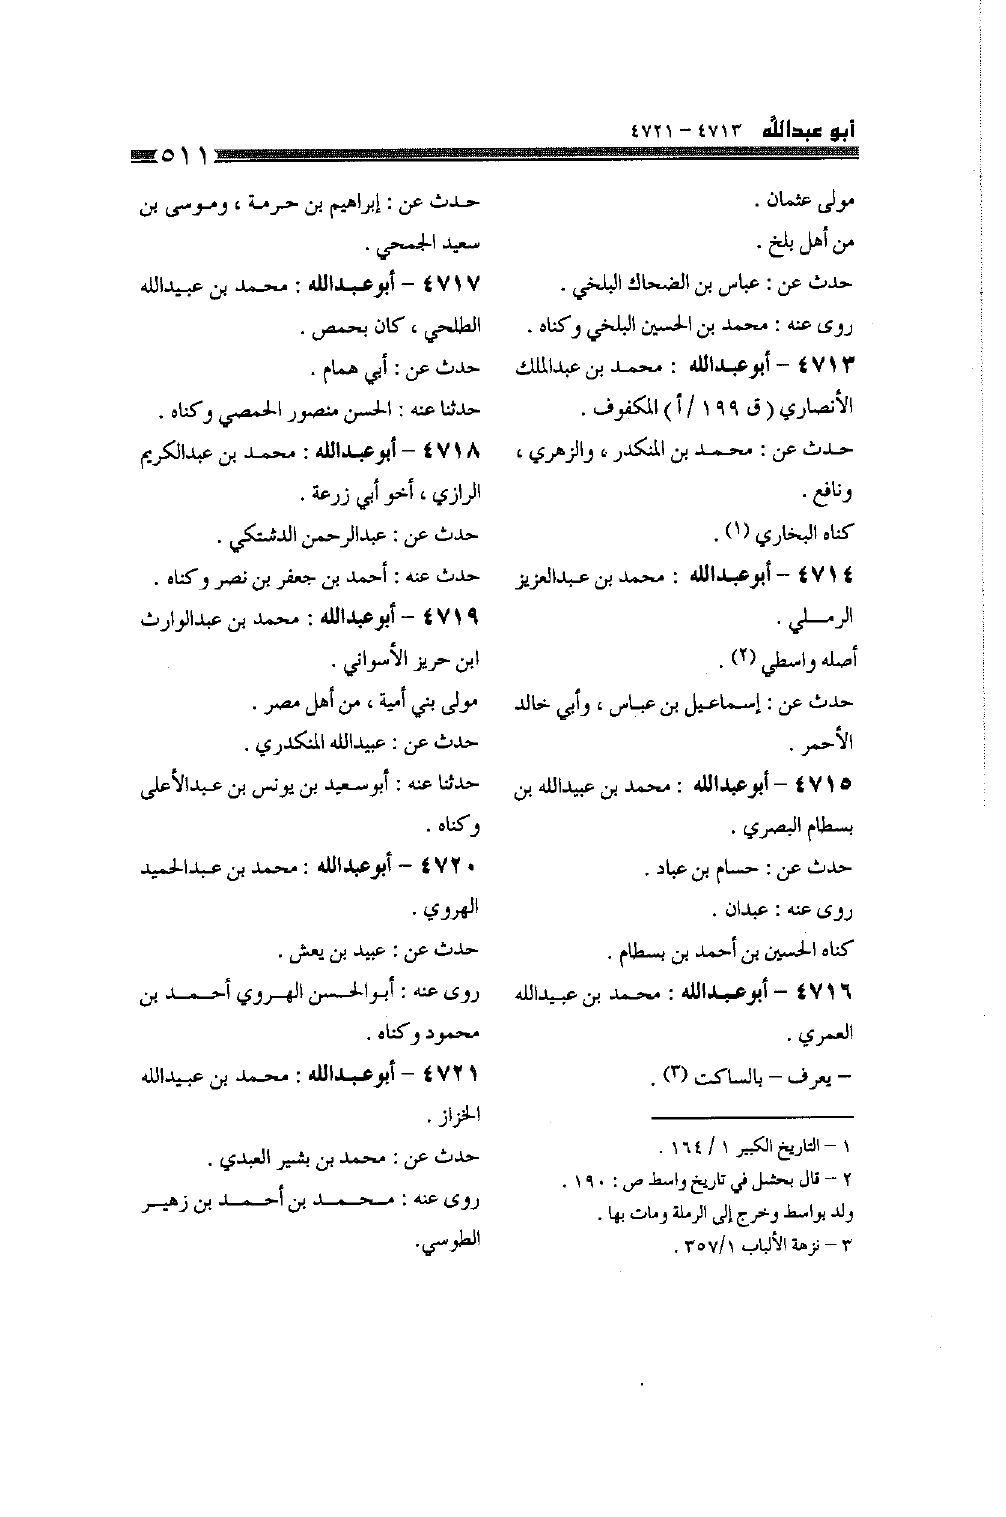 أبو عبدالله ٤٧١٣ - ٤٧٢١
٥١١
مولى عثمان .
من أهل بلخ .
حدث عن : عباس بن الضحاك البلخي .
روى عنه : محمد بن الحسين البلخي وكناه .
٤٧١٣ - أبو عبدالله : محمد بن عبدالملك
الأنصاري ( ق ١٩٩ / أ ) المكفوف .
حدث عن : محمد بن المنكدر ، والزهري ،
ونافع .
كناه البخاري (١) .
٤٧١٤ - أبو عبدالله : محمد بن عبدالعزيز
الرملي .
أصله واسطي (٢) .
حدث عن : إسماعيل بن عباس ، وأبي خالد
الأحمر .
٤٧١٥ - أبو عبدالله : محمد بن عبيدالله بن
بسطام البصري .
حدث عن : حسام بن عباد .
روى عنه : عبدان .
كناه الحسين بن أحمد بن بسطام .
٤٧١٦ - أبو عبدالله : محمد بن عبيدالله
العمري .
- يعرف - بالساكت (٣) .
١ - التاريخ الكبير ١ / ١٦٤ .
٢ - قال بحشل في تاريخ واسط ص : ١٩٠ .
ولد بواسط وخرج إلى الرملة ومات بها .
٣ - نزهة الألباب ٣٥٧/١ .
حدث عن : إبراهيم بن حرمة ، وموسى بن
سعيد الجمحي .
٤٧١٧ - أبو عبدالله : محمد بن عبيدالله
الطلحي ، كان بحمص .
حدث عن : أبي همام .
حدثنا عنه : الحسن منصور الحمصي وكناه .
٤٧١٨ - أبو عبدالله : محمد بن عبدالكريم
الرازي ، أخو أبي زرعة .
حدث عن : عبدالرحمن الدشتكي .
حدث عنه : أحمد بن جعفر بن نصر وكناه .
٤٧١٩ - أبو عبدالله : محمد بن عبدالوارث
ابن حريز الأسواني .
مولى بني أمية ، من أهل مصر .
حدث عن : عبيدالله المنكدري .
حدثنا عنه : أبو سعيد بن يونس بن عبدالأعلى
وكناه .
٤٧٢٠ - أبو عبدالله : محمد بن عبدالحميد
الهروي .
حدث عن : عبيد بن يعش .
روى عنه : أبو الحسن الهروي أحمد بن
محمود وكناه .
٤٧٢١ - أبو عبدالله : محمد بن عبيدالله
الخزاز .
حدث عن : محمد بن بشير العبدي .
روى عنه : محمد بن أحمد بن زهير
الطوسي.